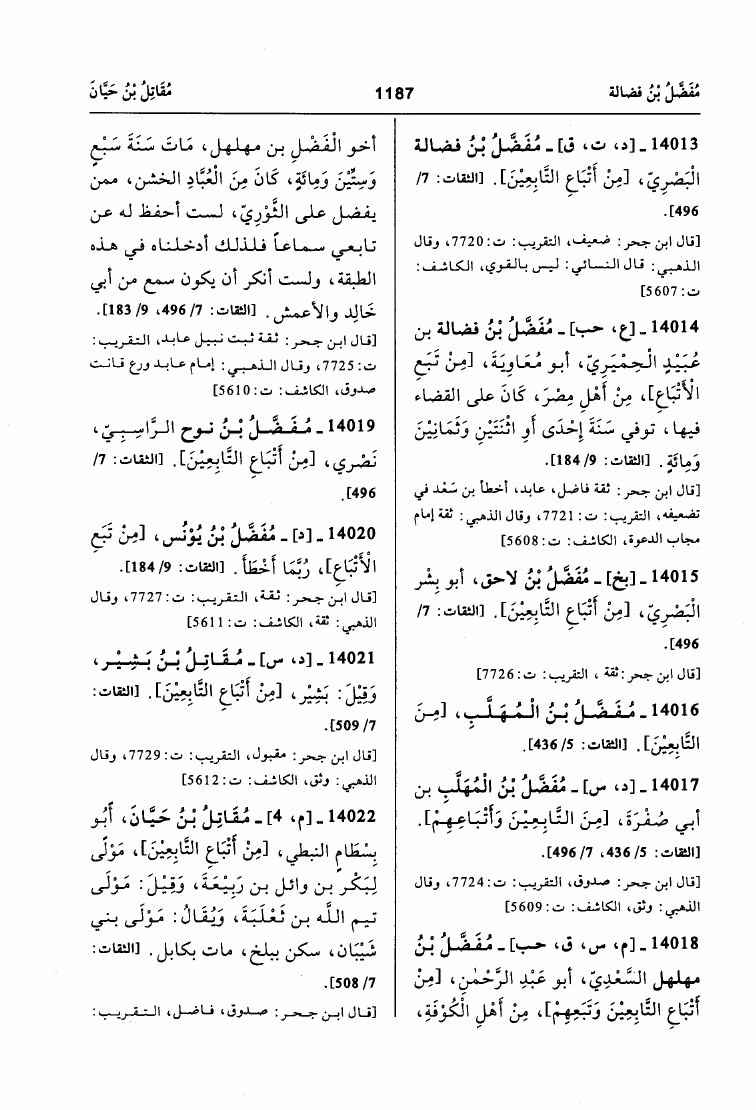 مُفَضَّلُ بْنُ فضالة
1187
مُقَاتِلُ بْنُ حَيَّانَ
14013 ـ [د، ت، ق] ـ مُفَضَّلُ بْنُ فضالة
الْبَصْرِيّ، [مِنْ أَتْبَاعِ التَّابِعِيْنَ]. [الثقات: 7/
496].
[قال ابن حجر: ضعيف، التقريب: ت: 7720، وقال
الذهبي: قال النسائي: ليس بالقوي، الكاشف:
ت: 5607]
14014 ـ [ع، حب] ـ مُفَضَّلُ بْنُ فضالة بن
عُبَيْدٍ الْحِمْيَرِيّ، أبو مُعَاوِيَةَ، [مِنْ تَبَع
الْأَتْبَاعِ]، مِنْ أَهْلِ مِصْرَ، كَانَ على القضاء
فيها، توفي سَنَةَ إِحْدَى أَوِ اثْنَتَيْنِ وَثَمَانِيْنَ
وَمِائَةٍ. [الثقات: 9/ 184].
[قال ابن حجر: ثقة فاضل، عابد، أخطأ بن سَعْد في
تضعيفه، التقريب: ت: 7721، وقال الذهبي: ثقة إمام
مجاب الدعوة، الكاشف: ت: 5608]
14015 ـ [بخ] ـ مُفَضَّلُ بْنُ لاحق، أبو بِشْر
الْبَصْرِيّ، [مِنْ أَتْبَاعِ التَّابِعِيْنَ]. [الثقات: 7/
496].
[قال ابن حجر: ثقة ، التقريب: ت: 7726]
14016 ـ مُفَضَّلُ بْنُ الْمُهَلَّبِ، [مِنَ
التَّابِعِيْنَ]. [الثقات: 5/ 436].
14017 ـ [د، س] ـ مُفَضَّلُ بْنُ الْمُهَلَّبِ بن
أبي صُفْرَةَ، [مِنَ التَّابِعِيْنَ وَأَتْبَاعِهِمْ].
[الثقات: 5/ 436، 7/ 496].
[قال ابن حجر: صدوق، التقريب: ت: 7724، وقال
الذهبي: وثق، الكاشف: ت: 5609]
14018 ـ [م، س، ق، حب] ـ مُفَضَّلُ بْنُ
مهلهل السَّعْدِيّ، أبو عَبْدِ الرَّحْمٰنِ، [مِنْ
أَتْبَاعِ التَّابِعِيْنَ وَتَبَعِهِمْ]، مِنْ أَهْلِ الْكُوْفَةِ،
أخو الْفَضْلِ بن مهلهل، مَاتَ سَنَةَ سَبْعٍ
وَسِتِّيْنَ وَمِائَةٍ، كَانَ مِنَ الْعُبَّادِ الخشن، ممن
يفضل على الثَّوْرِيّ، لست أحفظ له عن
تابعي سماعاً فلذلك أدخلناه في هذه
الطبقة، ولست أنكر أن يكون سمع من أبي
خَالِد والأعمش. [الثقات: 7/ 496، 9/ 183].
[قال ابن حجر: ثقة ثبت نبيل عابد، التقريب:
ت: 7725، وقال الذهبي: إمام عابد ورع قانت
صدوق، الكاشف: ت: 5610]
14019 ـ مُفَضَّلُ بْنُ نوح الرَّاسِبِيّ،
بَصْري، [مِنْ أَتْبَاعِ التَّابِعِيْنَ]. [الثقات: 7/
496].
14020 ـ [د] ـ مُفَضَّلُ بْنُ يُوْنُس، [مِنْ تَبَع
الْأَتْبَاعِ]، رُبَّمَا أَخْطَأَ. [الثقات: 9/ 184].
[قال ابن حجر: ثقة، التقريب: ت: 7727، وقال
الذهبي: ثقة، الكاشف: ت: 5611]
14021 ـ [د، س] ـ مُقَاتِلُ بْنُ بَشِيْر،
وَقِيْلَ: بَشِيْر، [مِنْ أَتْبَاعِ التَّابِعِيْنَ]. [الثقات:
7/ 509].
[قال ابن حجر: مقبول، التقريب: ت: 7729، وقال
الذهبي: وثق، الكاشف: ت: 5612]
14022 ـ [م، 4] ـ مُقَاتِلُ بْنُ حَيَّانَ، أَبُو
بِسْطَامِ النبطي، [مِنْ أَتْبَاعِ التَّابِعِيْنَ]، مَوْلَى
لِبَكْرِ بن وائل بن رَبِيْعَةَ، وَقِيْلَ: مَوْلَى
تيم الله بن ثَعْلَبَةَ، وَيُقَالُ: مَوْلَى بني
شَيْبَان، سكن ببلخ، مات بكابل. [الثقات:
7/ 508].
[قال ابن حجر: صدوق، فاضل، التقريب: